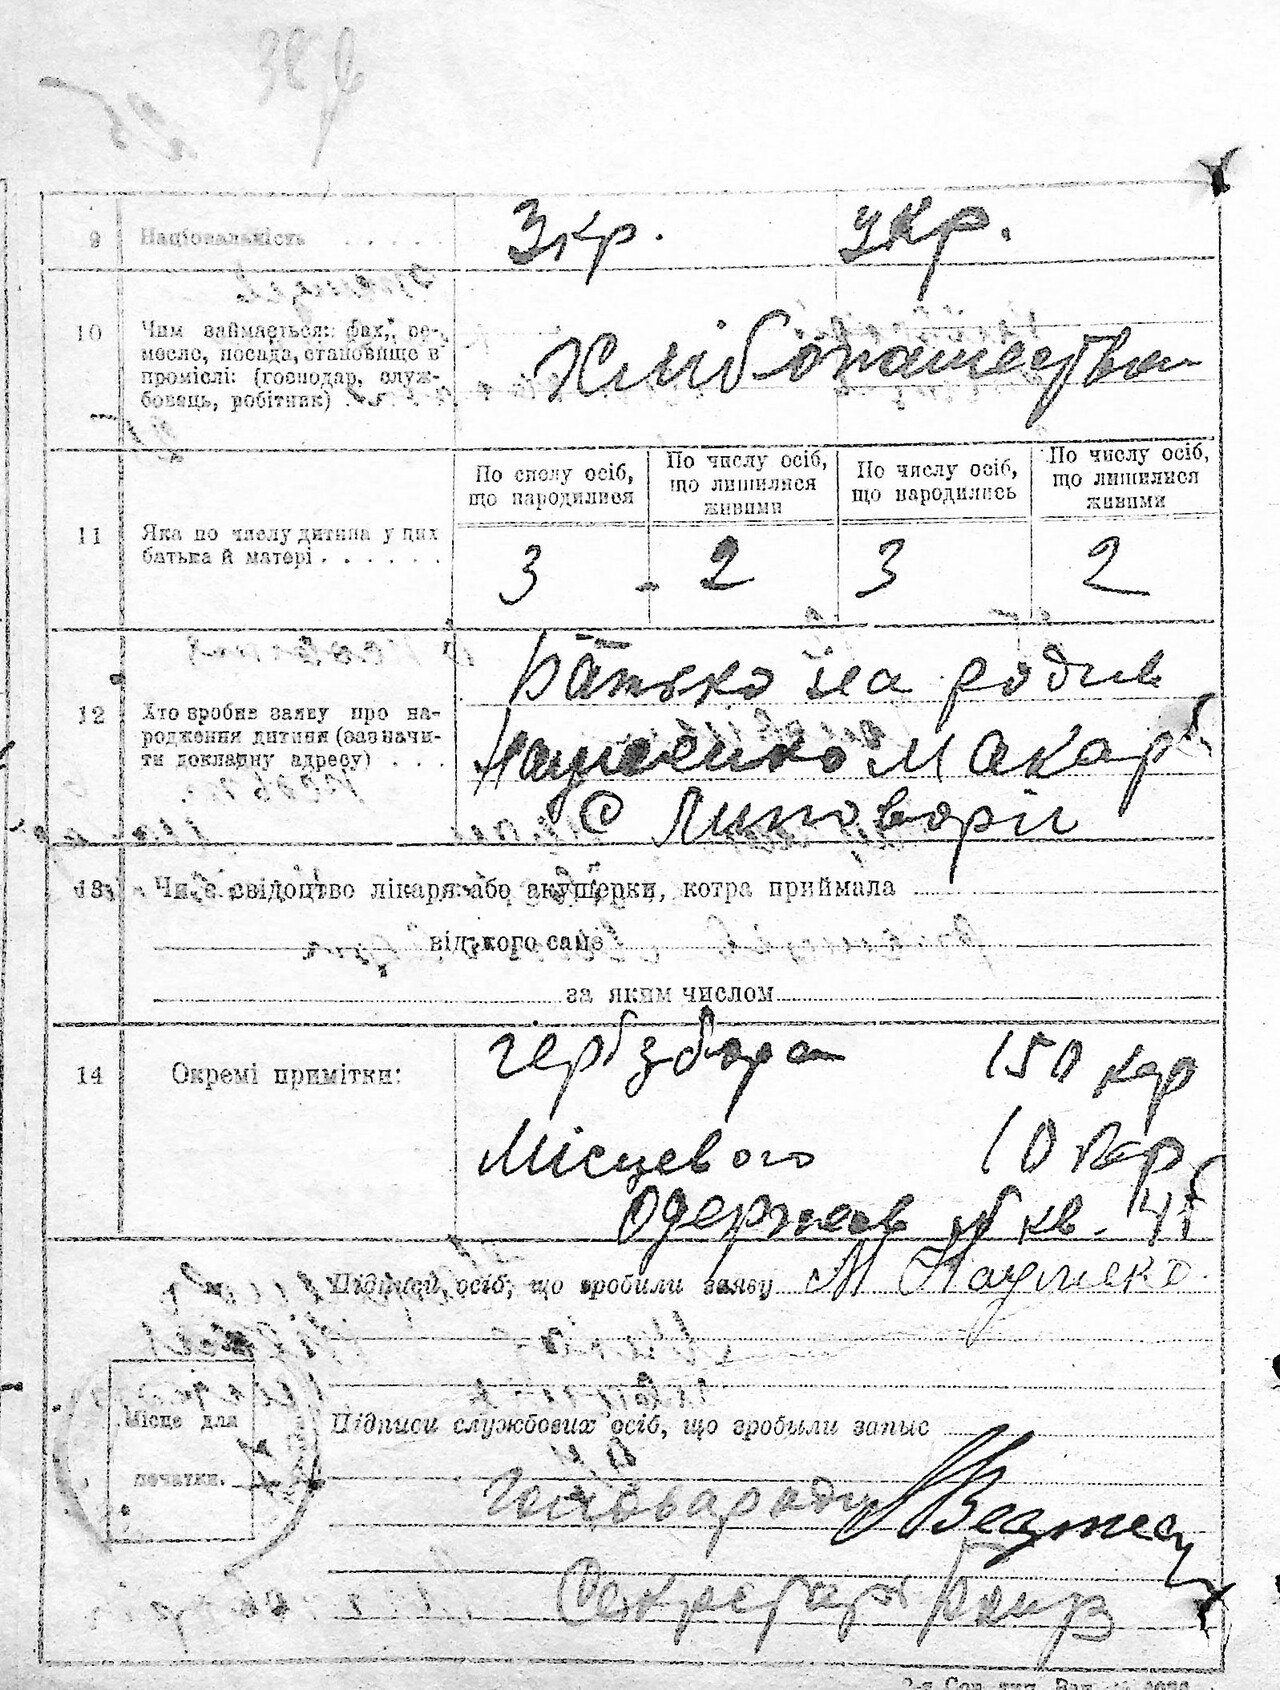 38
25
9 Національність . . . . . Укр. укр.
10 Чим займається: фах, ре-
месло, посада, становище в
проміслі: (господар, служ-
бовець, робітник)
Хлібопашество
По числу осіб,
що народилися
По числу осіб,
що лишилися
живими
По числу осіб,
що народились
По числу осіб,
що лишилися
живими
11 Яка по числу дитина у цих
батька й матері . . . . . .
3 2 3 2
12 Хто зробив заяву про на-
родження дитини (зазначи-
ти докладну адресу) . . .
Батько на родив
Науменко Макар
с Липоворіи
13 Чи є свідоцтво лікаря або акушерки, котра приймала
від кого саме
за яким числом
14 Окремі примітки:
герб збора 150 кар
Місцевого 10 кар
Одержав кв. 45
Підписи, осіб, що зробили заяву М Науменко
Місце для
печатки.
Підписи службових осіб, що зробыли запыс
Голова ради
Секретарь